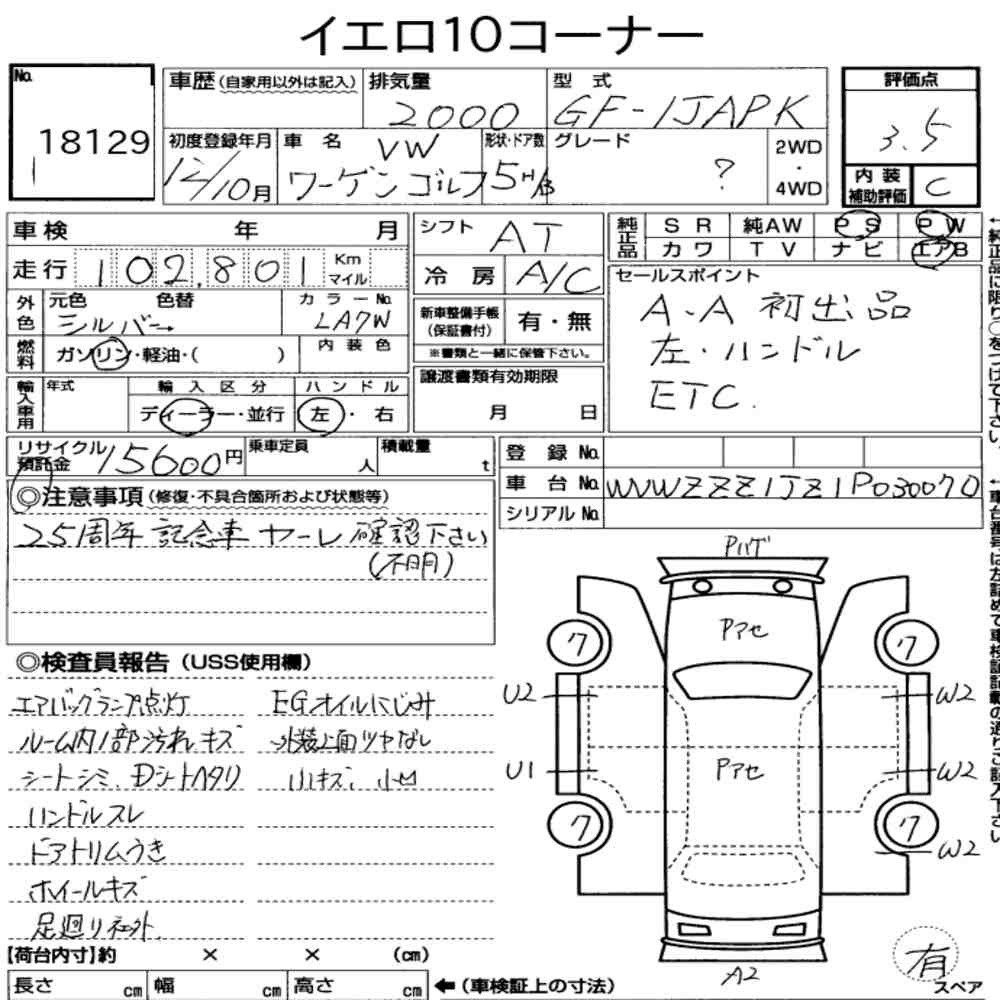 イエロ10コーナー
No. 18129
車歴(自家用以外は記入)
排気量 2000
型式 GF-1JAPK
評価点 3.5
初度登録年月 12/10月
車名 VW ワーゲンゴルフ
形状・ドア数 5 H/B
グレード ?
2WD・4WD
内装補助評価 C
車検 年 月
シフト AT
純正品 SR 純AW PS PW
カワ TV ナビ エアB
走行 102,801 Km マイル
冷房 A/C
外色 元色 色替 シルバー
カラーNo. LA7W
新車整備手帳(保証書付) 有・無
※書類と一緒に保管下さい。
セールスポイント
A.A 初出品
左・ハンドル
ETC.
燃料 ガソリン・軽油・( )
内装色
譲渡書類有効期限
月 日
輸入車用 年式 輸入区分 ハンドル
ディーラー・並行 左・右
リサイクル預託金 15600円
乗車定員 人
積載量 t
登録No.
車台No. WVWZZZ1JZ1P030070
シリアルNo.
◎注意事項(修復・不具合箇所および状態等)
25周年記念車 ヤーレ 確認下さい
(不明)
◎検査員報告(USS使用欄)
エアバックランプ点灯
ルーム内1部汚れキズ
シートシミ、Dシートヘタリ
ハンドルスレ
ドアトリムうき
ホイールキズ
足廻りネ外
EGオイルにじみ
外装上面ツヤなし
小キズ、小凹
Pハゲ
Pアセ
ワ ワ
U2 W2
U1 Pアセ W2
ワ ワ
W2
A2
有
スペア
【荷台内寸】約 × × (cm)
長さ cm 幅 cm 高さ cm ←(車検証上の寸法)
←純正品に限り○をつけて下さい。
←車台番号は左詰めで車検証記載の通りご記入下さい